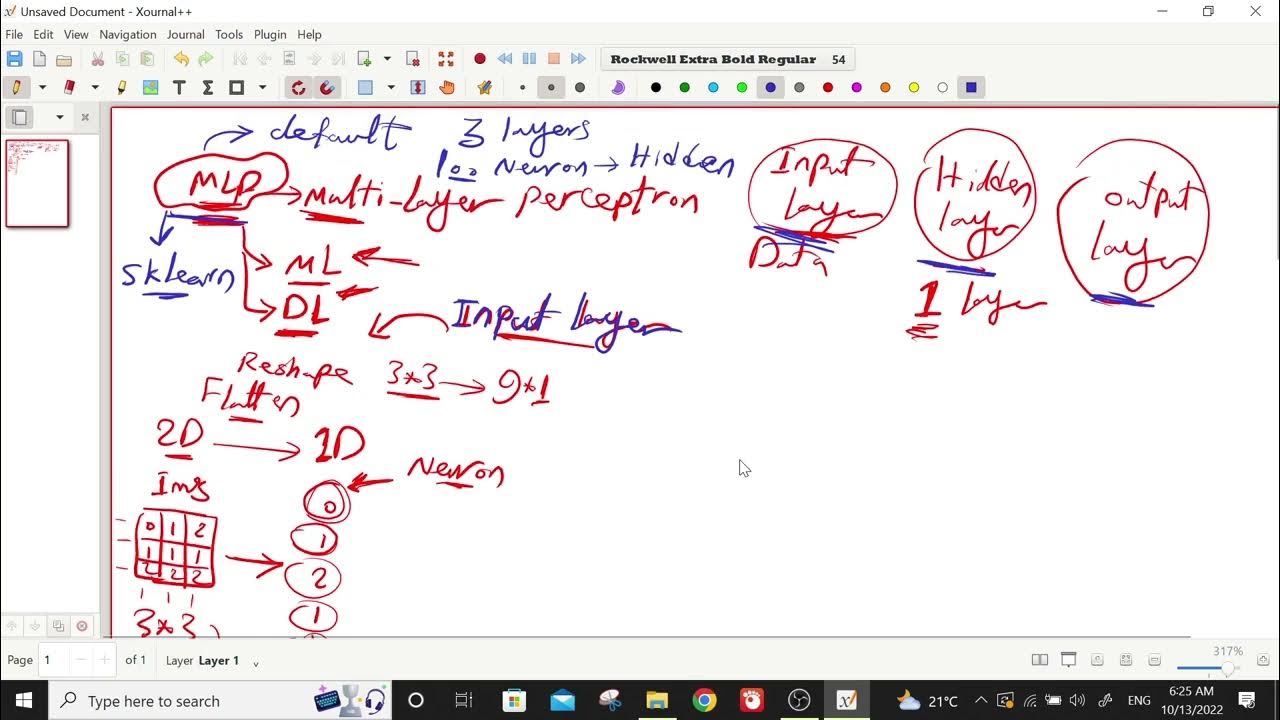 Unsaved Document - Xournal++
File Edit View Navigation Journal Tools Plugin Help
Rockwell Extra Bold Regular 54
default 3 layers
100 Neuron → Hidden
MLP → Multi-Layer perceptron
Input
Layer
Data
Hidden
layer
1 layer
output
layer
sklearn
ML
DL
Input layer
Reshape 3*3 → 9*1
Flatten
2D → 1D
Neuron
Img
0 1 2
1 1 1
2 2 2
3*3
0
1
2
1
Page 1 of 1 Layer Layer 1
317%
Type here to search
21°C
ENG
6:25 AM
10/13/2022